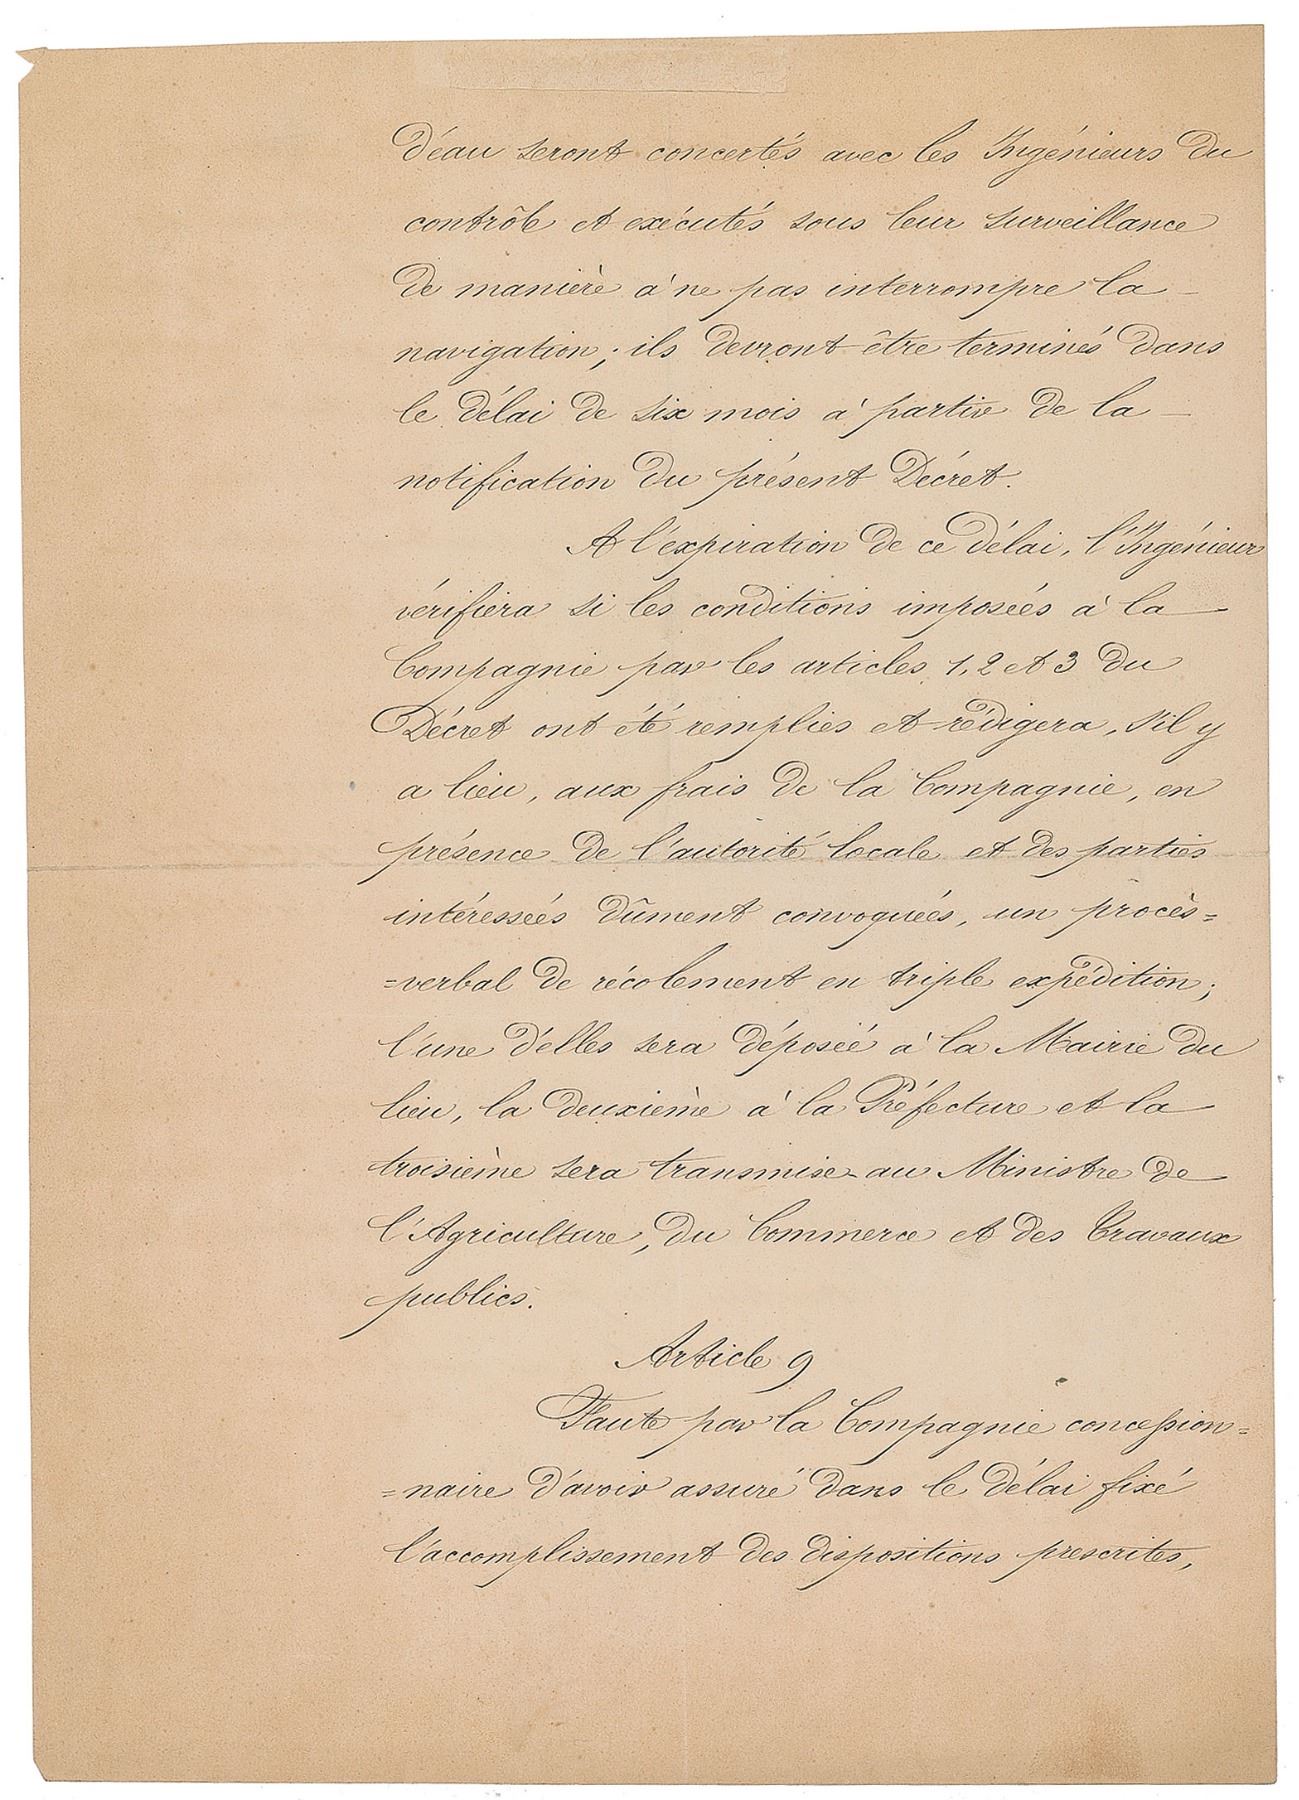 d'eau seront concertés avec les Ingénieurs du
contrôle et exécutés sous leur surveillance
de manière à ne pas interrompre la
navigation; ils devront être terminés dans
le délai de six mois à partir de la
notification du présent Décret.
A l'expiration de ce délai, l'Ingénieur
vérifiera si les conditions imposées à la
Compagnie par les articles 1, 2 et 3 du
Décret ont été remplies et rédigera, s'il y
a lieu, aux frais de la Compagnie, en
présence de l'autorité locale et des parties
intéressées dûment convoquées, un procès=
=verbal de récolement en triple expédition;
l'une d'elles sera déposée à la Mairie du
lieu, la deuxième à la Préfecture et la
troisième sera transmise au Ministre de
l'Agriculture, du Commerce et des Travaux
publics.
Article 9
Faute par la Compagnie concession=
=naire d'avoir assuré dans le délai fixé
l'accomplissement des dispositions prescrites,